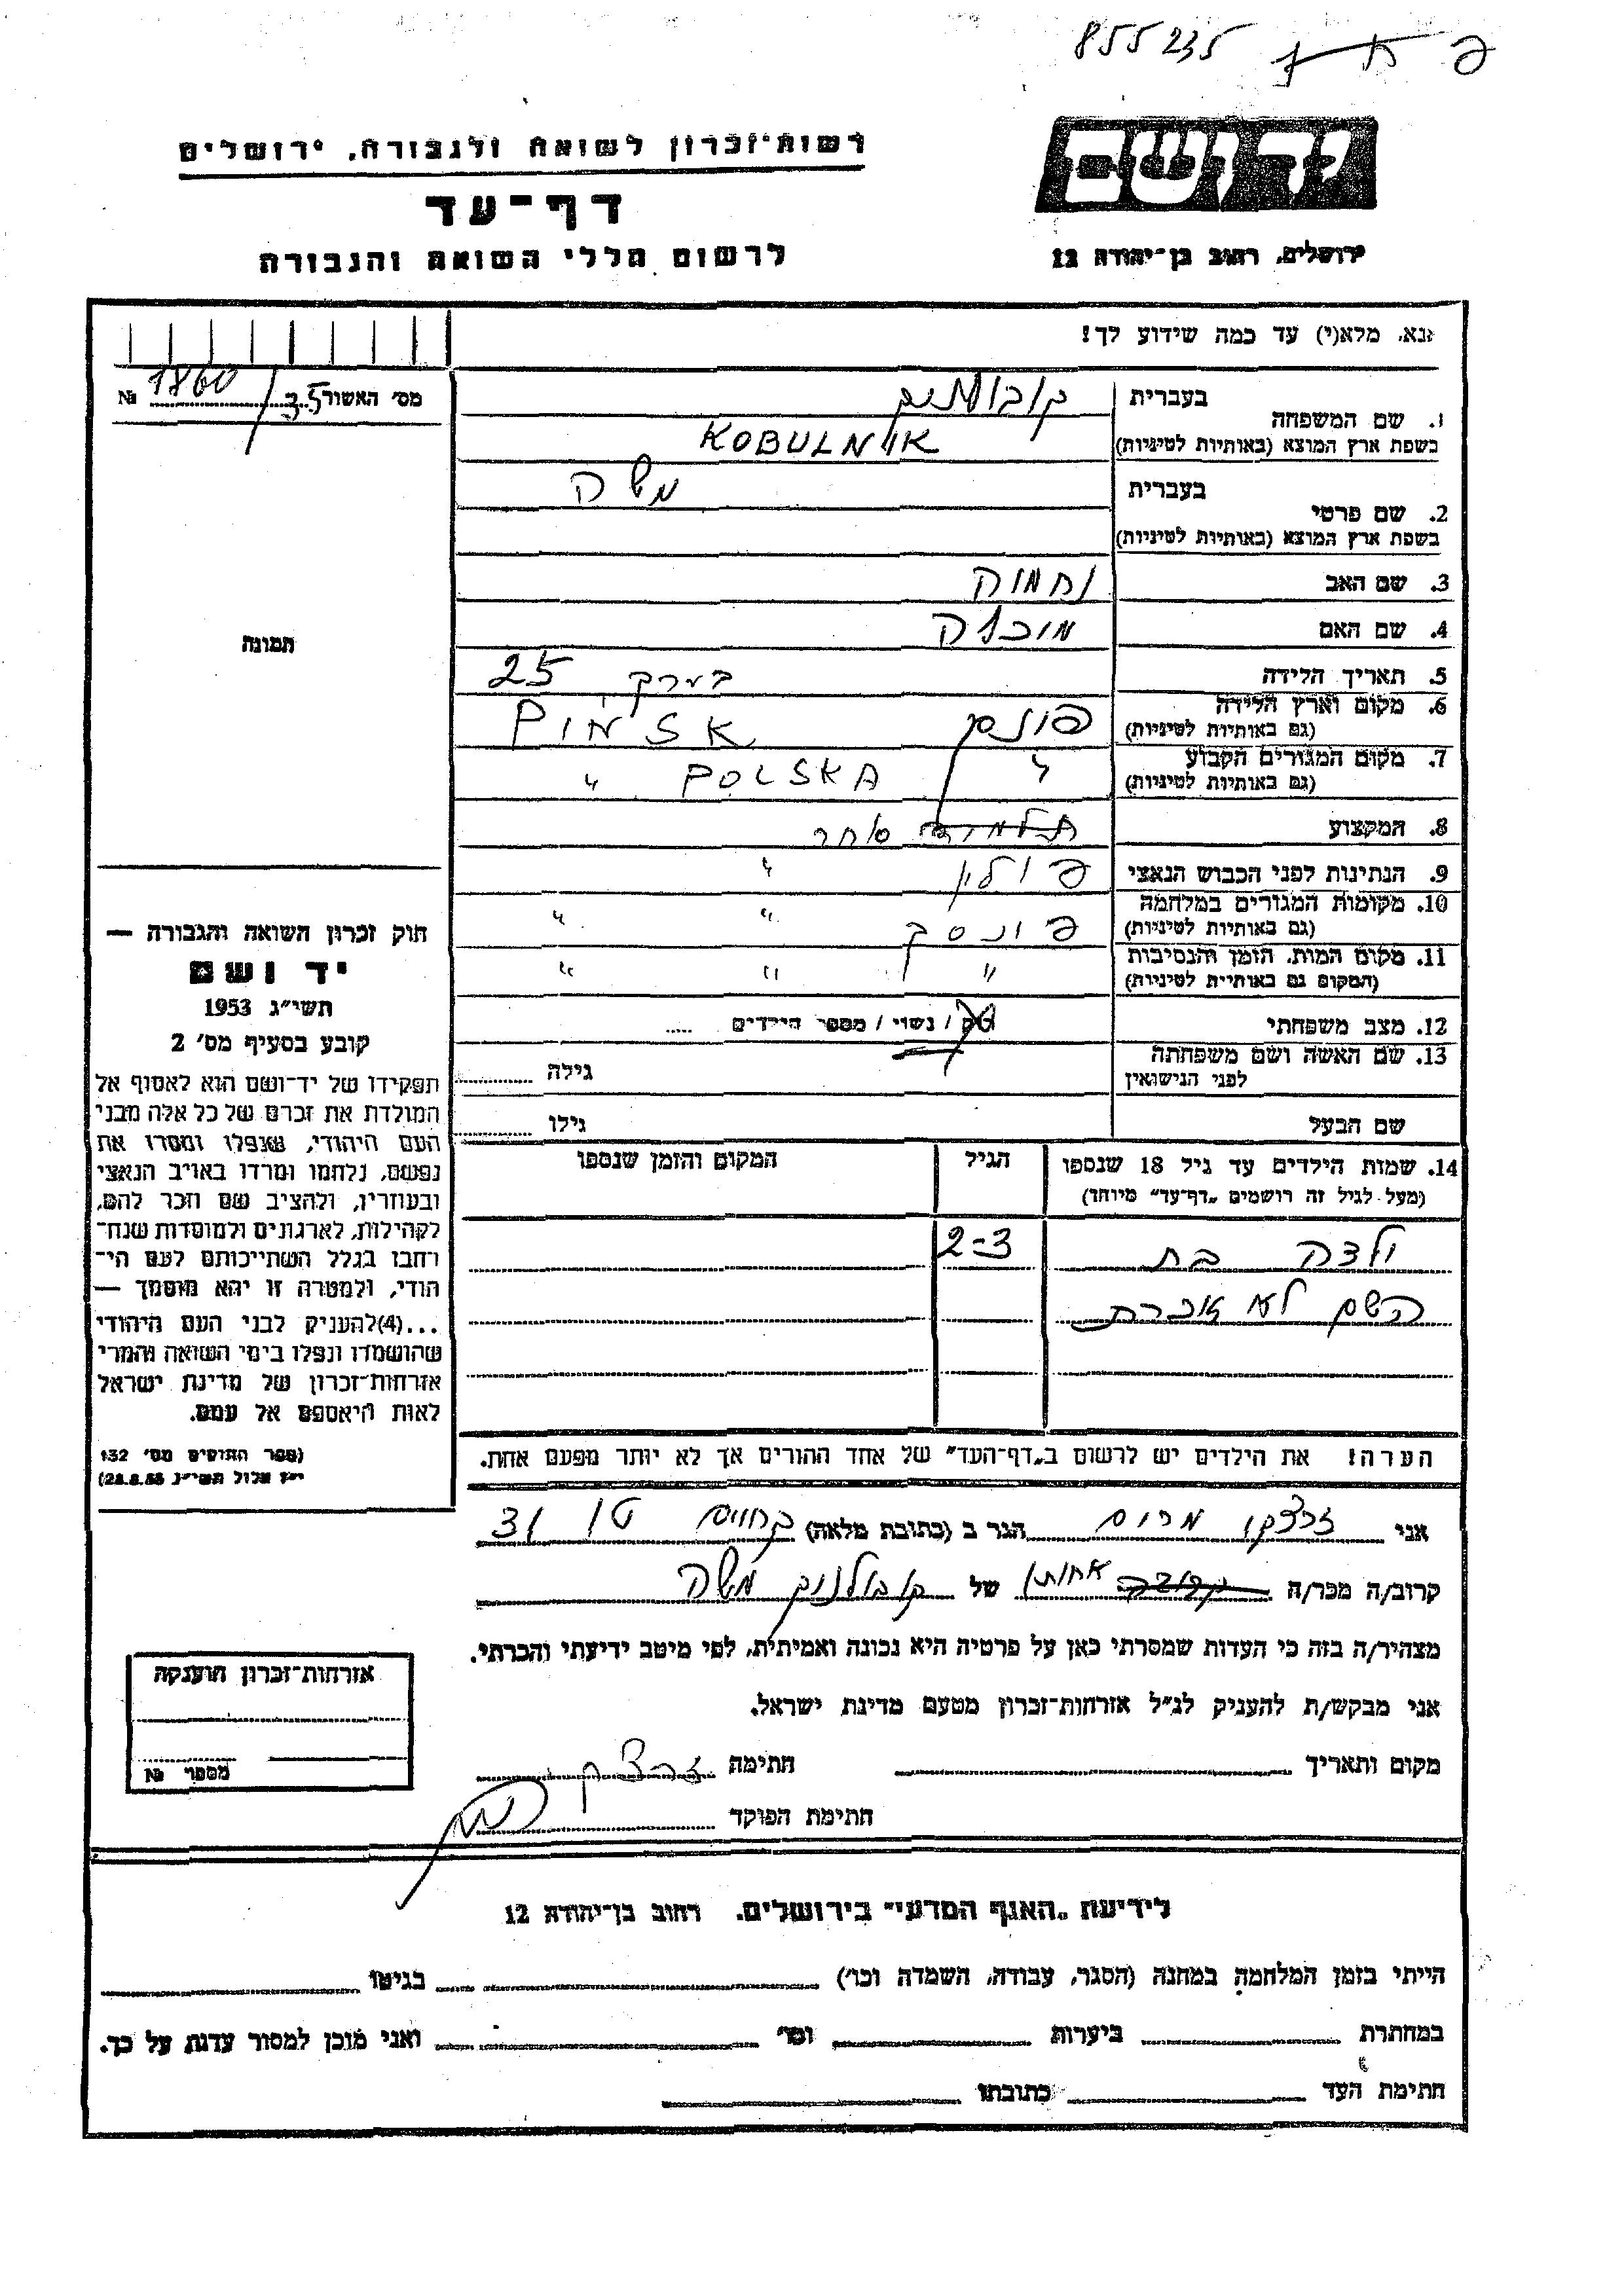 855235
רשות־זכרון לשואה ולגבורה, ירושלים
דף־עד
לרשום חללי השואה והגבורה
יד ושם
ירושלים, רחוב בן־יהודה 12
נא, מלא(י) עד כמה שידוע לך!
מס׳ האשור 1860/35 №
1. שם המשפחה
בעברית
בשפת ארץ המוצא (באותיות לטיניות) KOBULNIK
2. שם פרטי
בעברית משה
בשפת ארץ המוצא (באותיות לטיניות)
3. שם האב נחמיה
4. שם האם
5. תאריך הלידה בערך 25
6. מקום וארץ הלידה פינסק PINSK
(גם באותיות לטיניות)
7. מקום המגורים הקבוע " POLSKA "
(גם באותיות לטיניות)
8. המקצוע סוחר
9. הנתינות לפני הכבוש הנאצי פולין "
10. מקומות המגורים במלחמה פינסק " "
(גם באותיות לטיניות)
11. מקום המות, הזמן והנסיבות " " "
(המקום גם באותיות לטיניות)
12. מצב משפחתי רווק / נשוי / מספר הילדים .....
13. שם האשה ושם משפחתה
לפני הנישואין
גילה
שם הבעל גילו
14. שמות הילדים עד גיל 18 שנספו הגיל המקום והזמן שנספו
(מעל לגיל זה רושמים „דף־עד" מיוחד)
ילדה בת 2-3
השם לא זוכרת
הערה! את הילדים יש לרשום ב„דף־העד" של אחד ההורים אך לא יותר מפעם אחת.
תמונה
חוק זכרון השואה והגבורה —
יד ושם
תשי״ג 1953
קובע בסעיף מס׳ 2
תפקידו של יד־ושם הוא לאסוף אל
המולדת את זכרם של כל אלה מבני
העם היהודי, שנפלו ומסרו את
נפשם, נלחמו ומרדו באויב הנאצי
ובעוזריו, ולהציב שם וזכר להם,
לקהילות, לארגונים ולמוסדות שנח־
רבו בגלל השתייכותם לעם הי־
הודי, ולמטרה זו יהא מוסמך —
...(4)להעניק לבני העם היהודי
שהושמדו ונפלו בימי השואה והמרי
אזרחות־זכרון של מדינת ישראל
לאות היאספם אל עמם.
(ספר החוקים מס׳ 132
י״ז אלול תשי״ג 28.8.53)
אני הגר ב (כתובת מלאה) 31
קרוב/ה מכר/ה אחותו של קובולניק משה
מצהיר/ה בזה כי העדות שמסרתי כאן על פרטיה היא נכונה ואמיתית, לפי מיטב ידיעתי והכרתי.
אני מבקש/ת להעניק לנ״ל אזרחות־זכרון מטעם מדינת ישראל.
מקום ותאריך חתימה
חתימת הפוקד
אזרחות־זכרון הוענקה
מספר №
לידיעת „האגף המדעי" בירושלים, רחוב בן־יהודה 12
הייתי בזמן המלחמה במחנה (הסגר, עבודה, השמדה וכו׳) בגיטו
במחתרת ביערות וכו׳ ואני מוכן למסור עדות על כך.
חתימת העד כתובתו